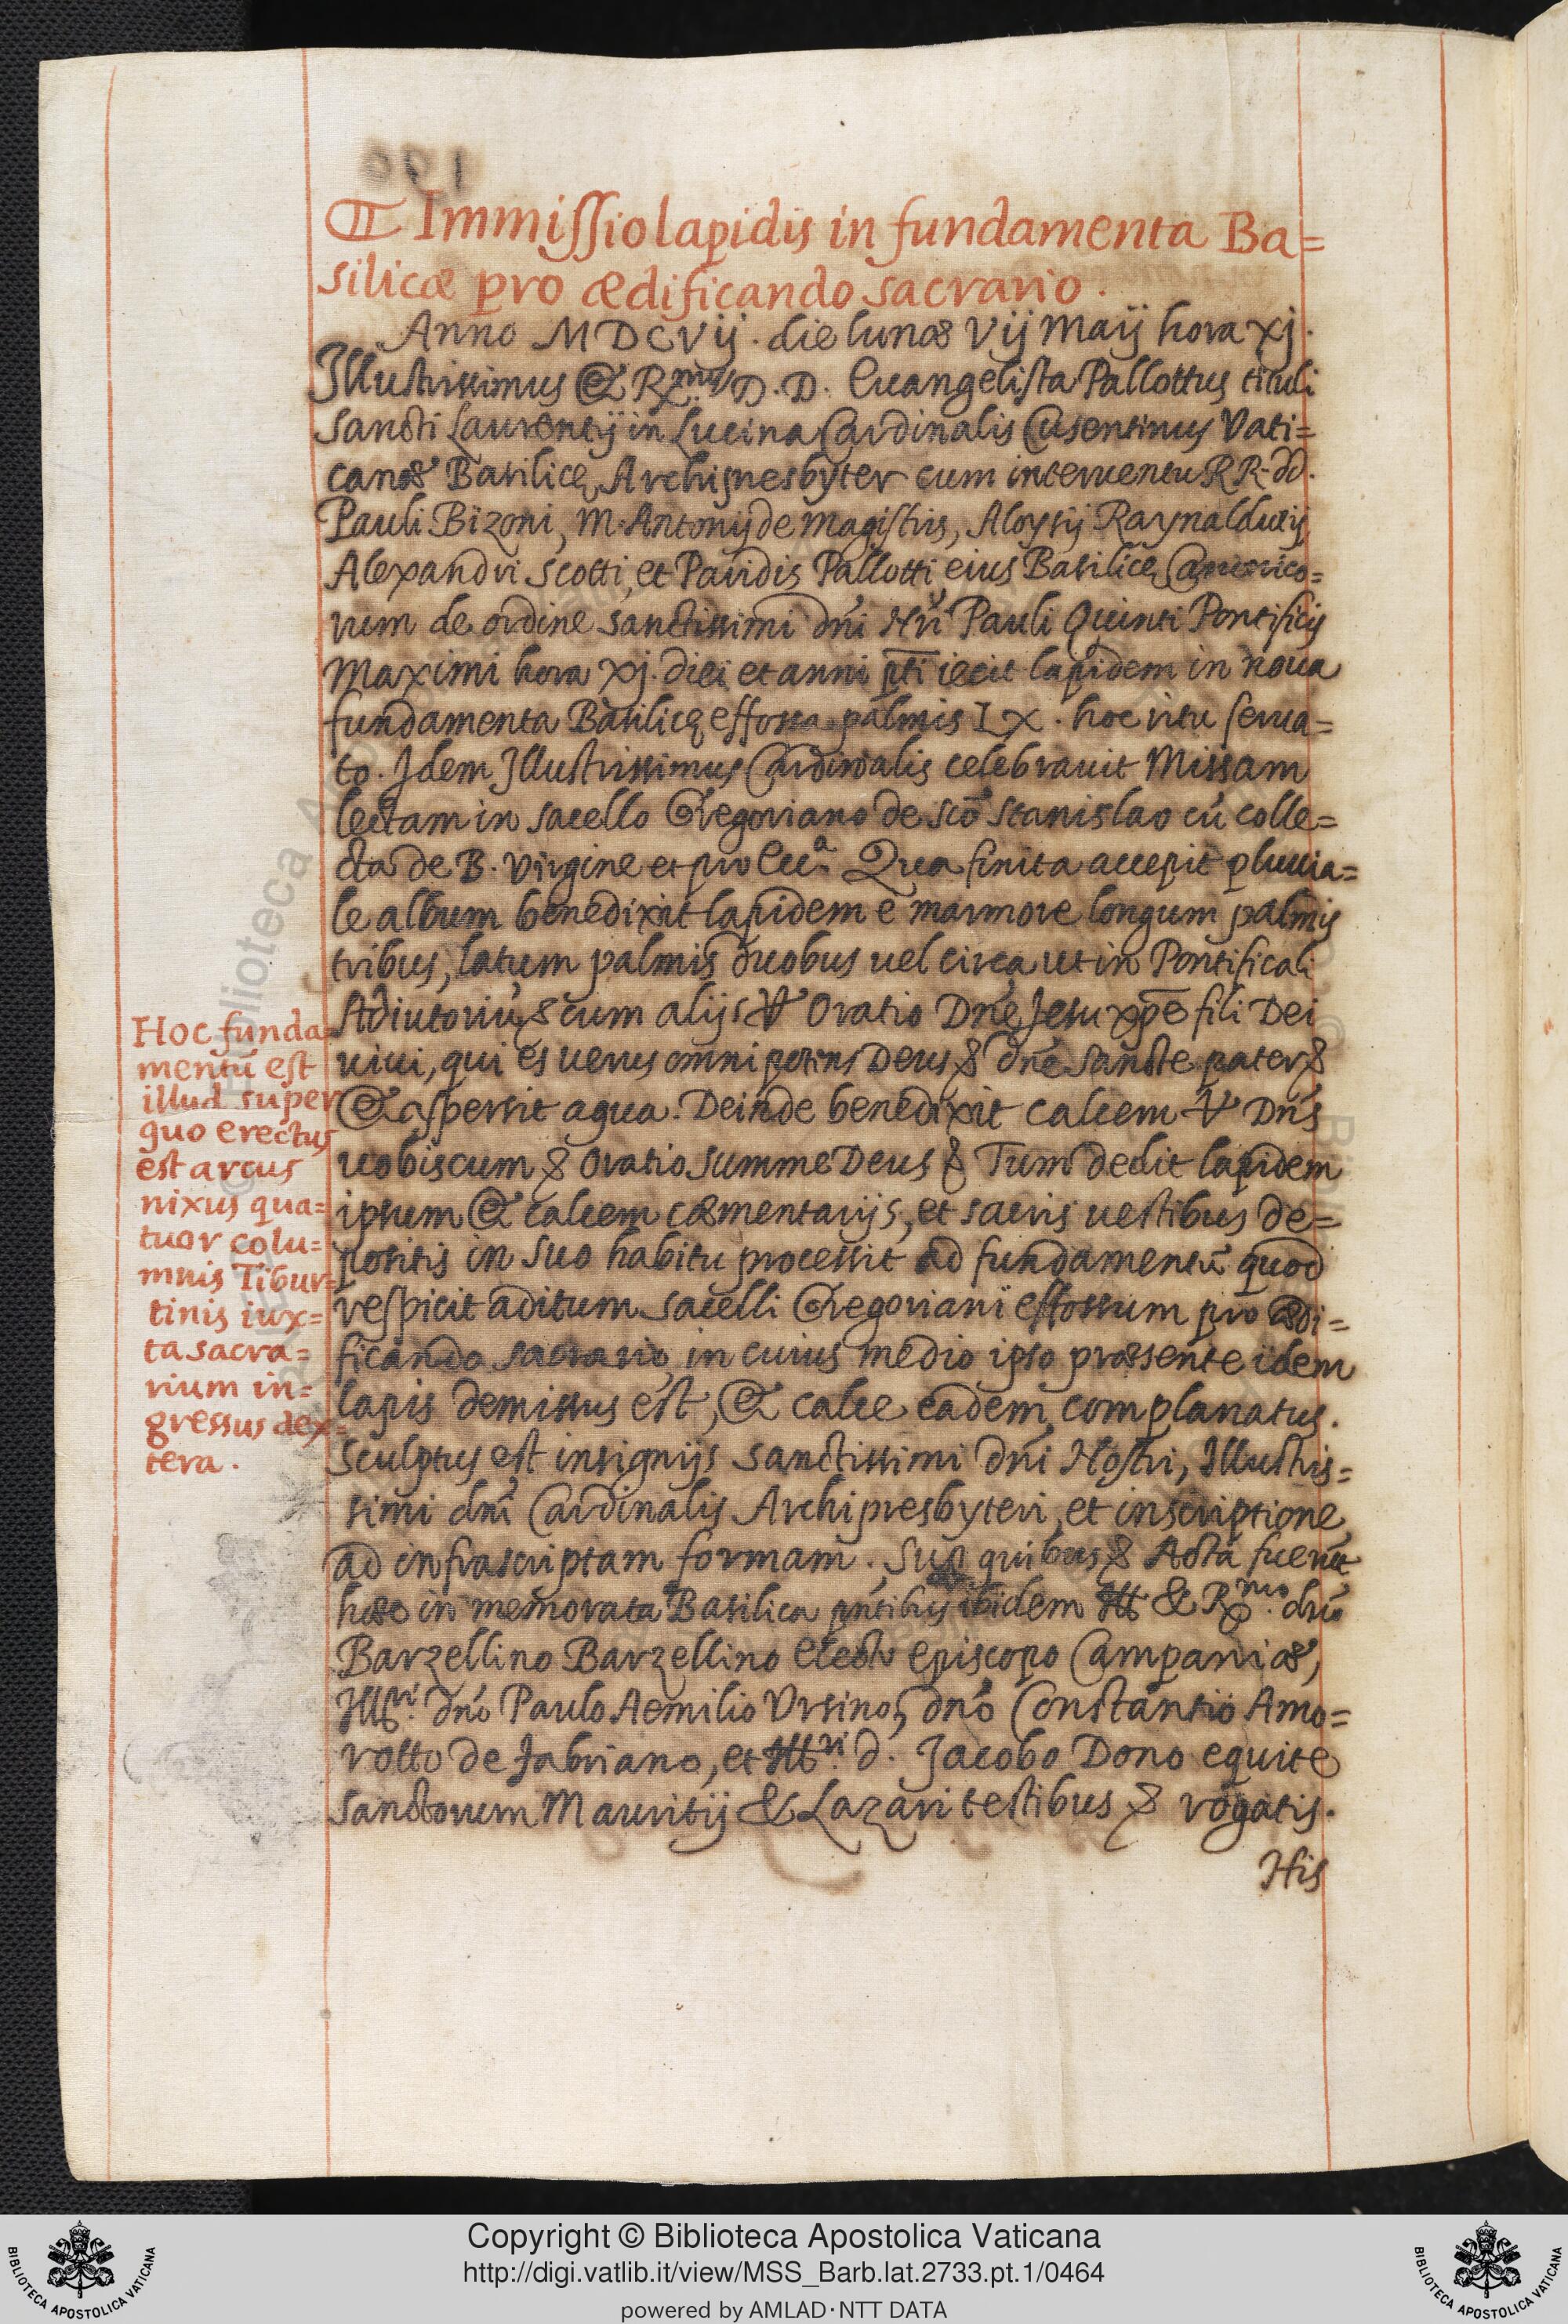 ¶ Immissio lapidis in fundamenta Ba=
silicæ pro ædificando sacrario.
Anno MDCVij. die lunæ Vij Maij hora xj.
Illustrissimus & R.mus D. D. Euangelista Pallottus tituli
Sancti Laurentij in Lucina Cardinalis Cusentinus Vati=
canæ Basilicę Archipresbyter cum interuentu RR. dd.
Pauli Bizoni, M. Antonij de Magistris, Aloysij Raynaldutij
Alexandri Scotti, et Paridis Pallotti eius Basilicę Canonico=
rum de ordine sanctissimi dñi Nri Pauli Quinti Pontificis
Maximi hora xj. diei et anni pti iecit lapidem in noua
fundamenta Basilicę effossa palmis LX. hoc ritu serua=
to. Idem Illustrissimus Cardinalis celebrauit Missam
lectam in sacello Gregoriano de sco Stanislao cū colle=
cta de B. Virgine et pro Ecc.a Qua finita accepit pluuia=
le album benedixit lapidem è marmore longum palmis
tribus, latum palmis duobus uel circa ut in Pontificali
Adiutoriū & cum alijs ℣ Oratio Dñe Jesu xpē fili Dei
uiui, qui es uerus omnipotens Deus & dñe sancte pater &
& aspersit aqua. Deinde benedixit calcem ℣ Dñs
uobiscum & Oratio summe Deus & Tum dedit lapidem
ipsum & calcem cæmentarijs, et sacris uestibus de=
positis in suo habitu processit ad fundamentū quod
respicit aditum sacelli Gregoriani effossum pro ædi=
ficando sacrario, in cuius medio ipso præsente idem
lapis demissus est, & calce eadem complanatus.
Sculptus est insignijs sanctissimi dñi Nostri, Illustris=
simi dñi Cardinalis Archipresbyteri, et inscriptione
ad infrascriptam formam. Sup quibus & Acta fuerūt
hæc in memorata Basilica pntibus ibidem Ill & R.mo dño
Barzellino Barzellino electo episcopo Campaniæ,
Ill.ri dño Paulo Aemilio Vrsino, dño Constantio Amo=
rotto de Fabriano, et Ill.ri d. Jacobo Dono equite
sanctorum Mauritij & Lazari testibus & rogatis.
His
Hoc funda
mentū est
illud super
quo erectus
est arcus
nixus qua=
tuor colu=
mnis Tibur=
tinis iux=
ta sacra=
rium in=
gressus dex=
tera.
© Biblioteca Apostolica Vaticana
Copyright © Biblioteca Apostolica Vaticana
http://digi.vatlib.it/view/MSS_Barb.lat.2733.pt.1/0464
powered by AMLAD·NTT DATA
BIBLIOTECA APOSTOLICA VATICANA
BIBLIOTECA APOSTOLICA VATICANA